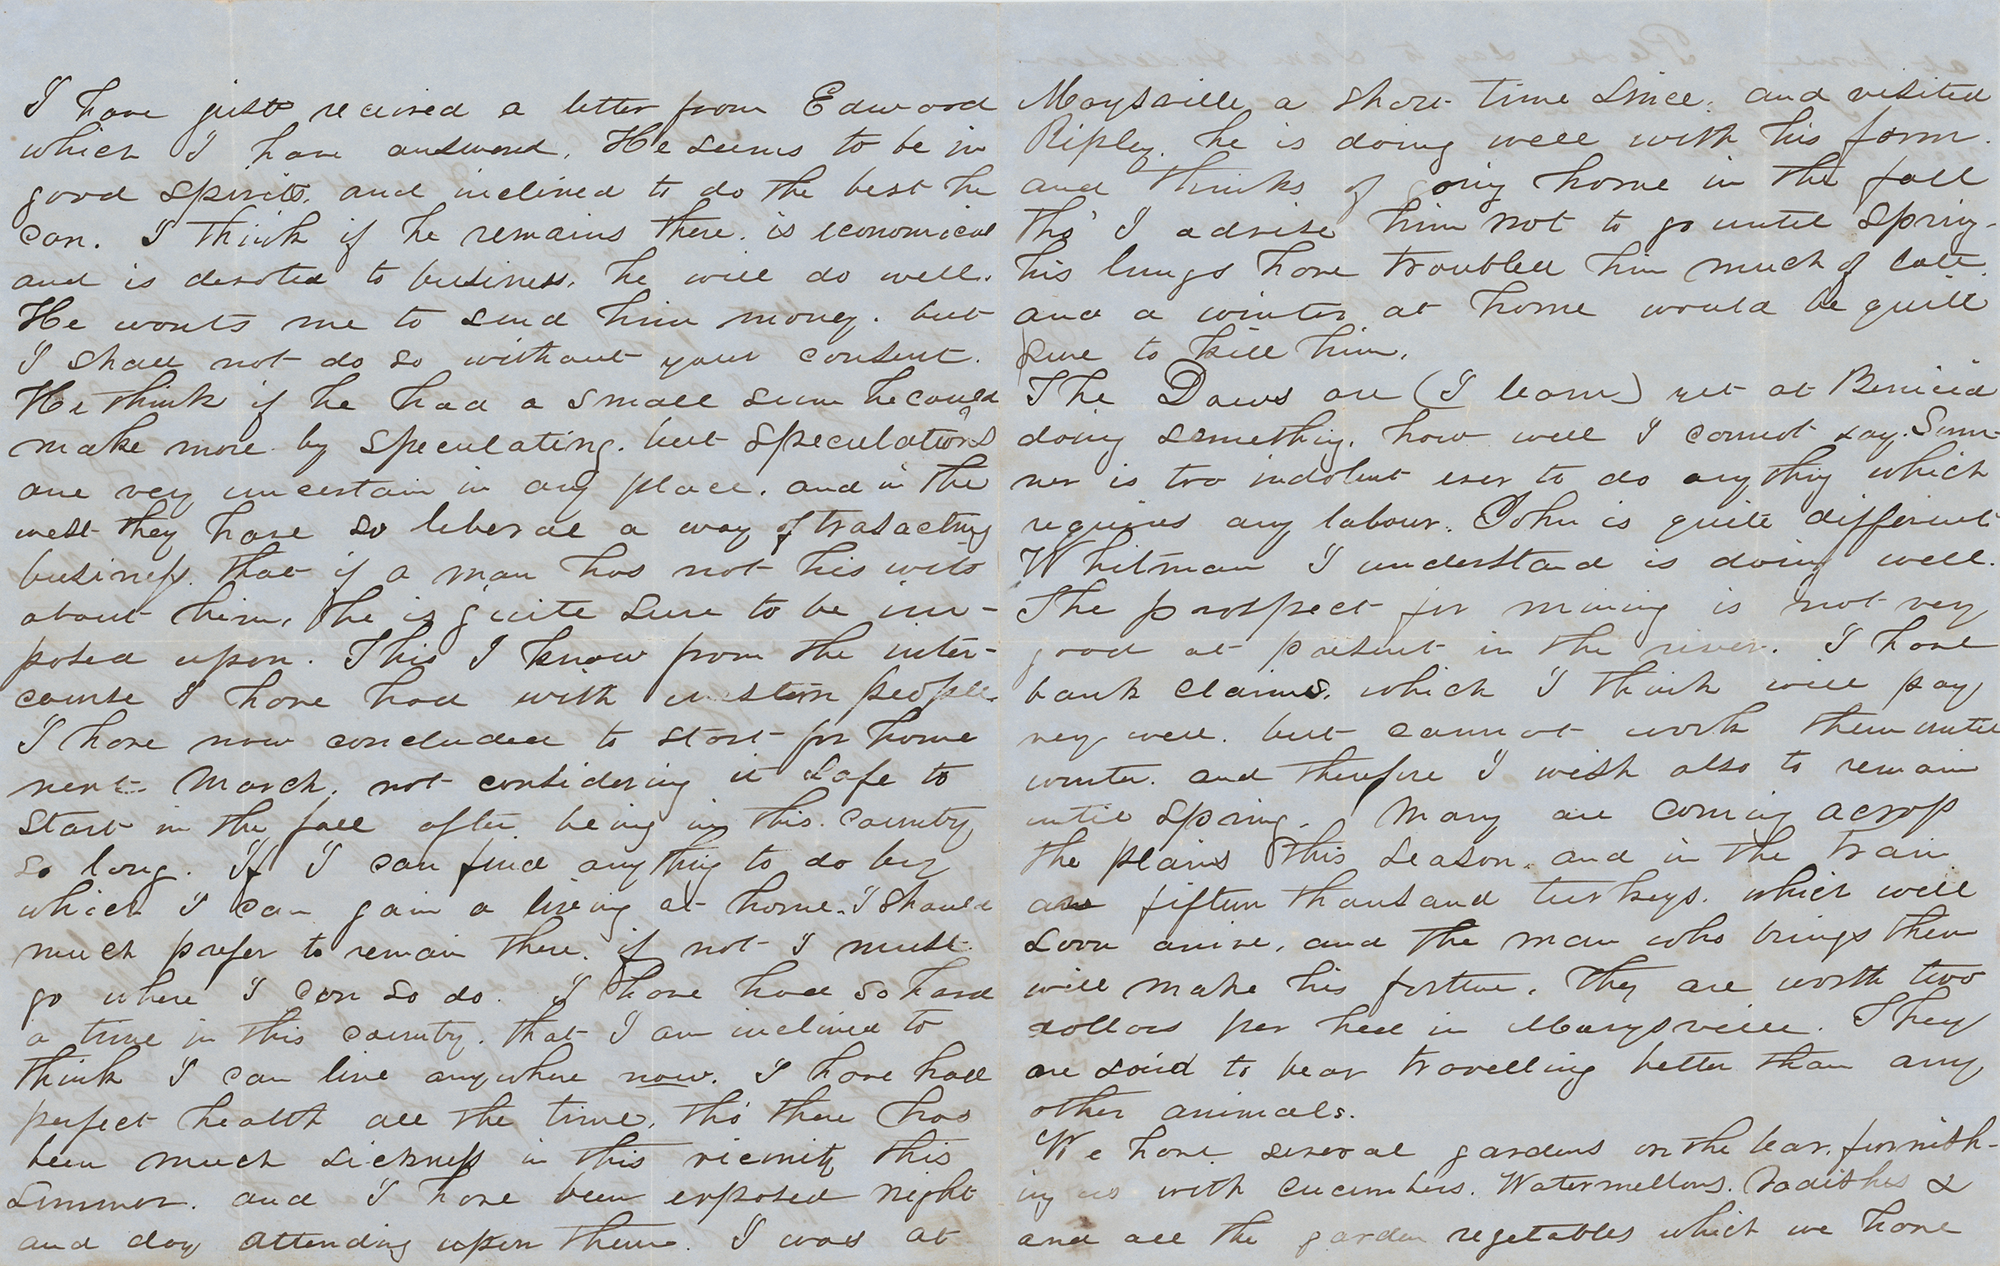 I have just recieved a letter from Edward
which I have answered. He seems to be in
good spirits, and inclined to do the best he
can. I think if he remains there, is economical
and is devoted to business, he will do well.
He wants me to send him money, but
I shall not do so without your consent.
He think if he had a small sum he could
make more by speculating, but speculations
are very uncertain in any place, and in the
west they have so liberal a way of trasacting
business, that if a man has not his wits
about him, he is quite sure to be im-
posed upon. This I know from the inter-
course I have had with western people.
I have now concluded to start for home
next March, not considering it safe to
start in the fall after being in this country
so long. If I can find any thing to do by
which I can gain a living at home, I should
much prefer to remain there, if not I must
go where I can so do. I have had so hard
a time in this country, that I am inclined to
think I can live anywhere now. I have had
perfect health all the time, tho' there has
been much sickness in this vicinity this
summer, and I have been exposed night
and day attending upon them. I was at
Marysville, a short time since, and visited
Ripley, he is doing well with his farm.
and thinks of going home in the fall
tho' I advise him not to go until spring.
his lungs have troubled him much of late,
and a winter at home would be quite
sure to kill him.
The Daws are (I learn) yet at Benicia
doing something, how well I cannot say. Sum-
ner is too indolent ever to do anything which
requires any labour. John is quite different
Whitman I understand is doing well.
The prospect for mining is not very
good at present in the river. I have
bank claims, which I think will pay
very well, but cannot work them until
winter, and therefore I wish also to remain
until spring. Many are coming across
the plains this season, and in the train
are fifteen thousand turkeys, which will
soon arrive, and the man who brings them
will make his fortune. They are worth two
dollars per head in Marysville. They
are said to bear travelling better than any
other animals.
We have several gardens on the bar, furnish-
ing us with cucumbers, Watermellons, Radishes &
and all the garden vegetables which we have